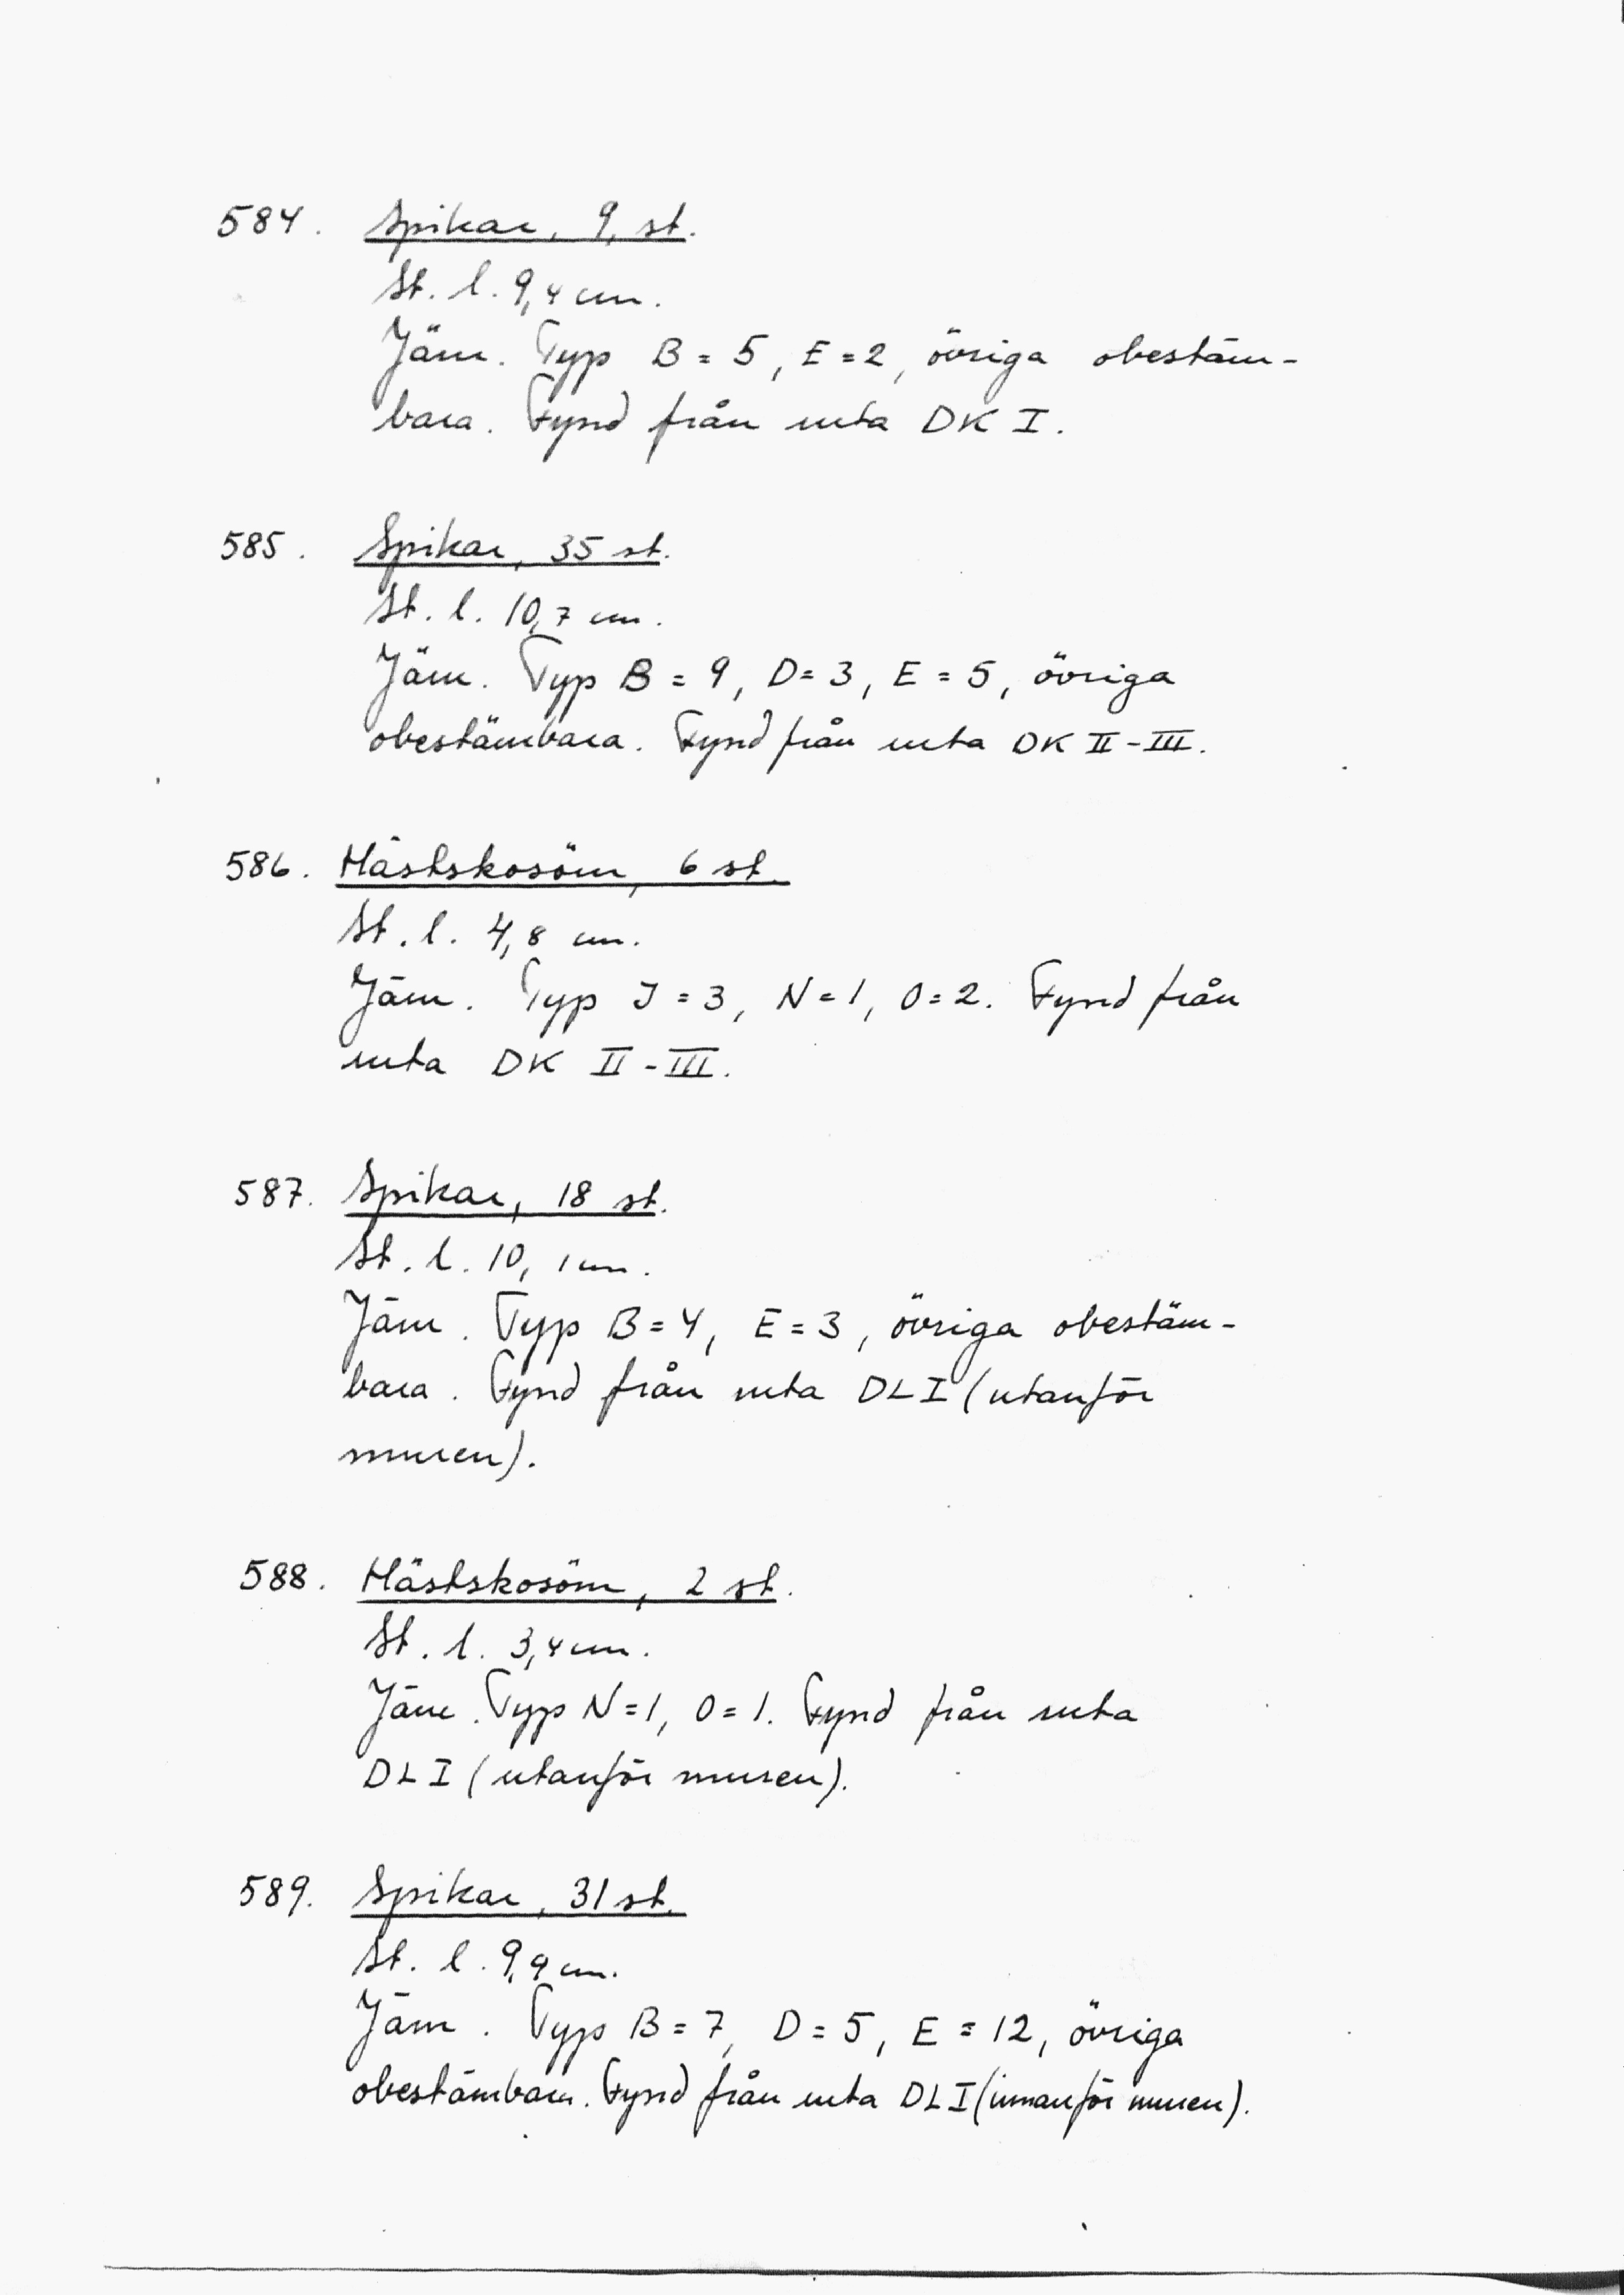 584. Spikar, 9, st.
St. l. 9,4 cm.
Järn. Typ B = 5, E = 2, övriga obestäm-
bara. Fynd från ruta DK I.
585. Spikar, 35 st.
St. l. 10,7 cm.
Järn. Typ B = 9, D = 3, E = 5, övriga
obestämbara. Fynd från ruta DK II - III.
586. Hästskosöm, 6 st.
St. l. 4,8 cm.
Järn. Typ J = 3, N = 1, O = 2. Fynd från
ruta DK II - III.
587. Spikar, 18 st.
St. l. 10,1 cm.
Järn. Typ B = 4, E = 3, övriga obestäm-
bara. Fynd från ruta DL I (utanför
muren).
588. Hästskosöm, 2 st.
St. l. 3,4 cm.
Järn. Typ N = 1, O = 1. Fynd från ruta
DL I (utanför muren).
589. Spikar, 31 st.
St. l. 9,9 cm.
Järn. Typ B = 7, D = 5, E = 12, övriga
obestämbara. Fynd från ruta DL I (innanför muren).